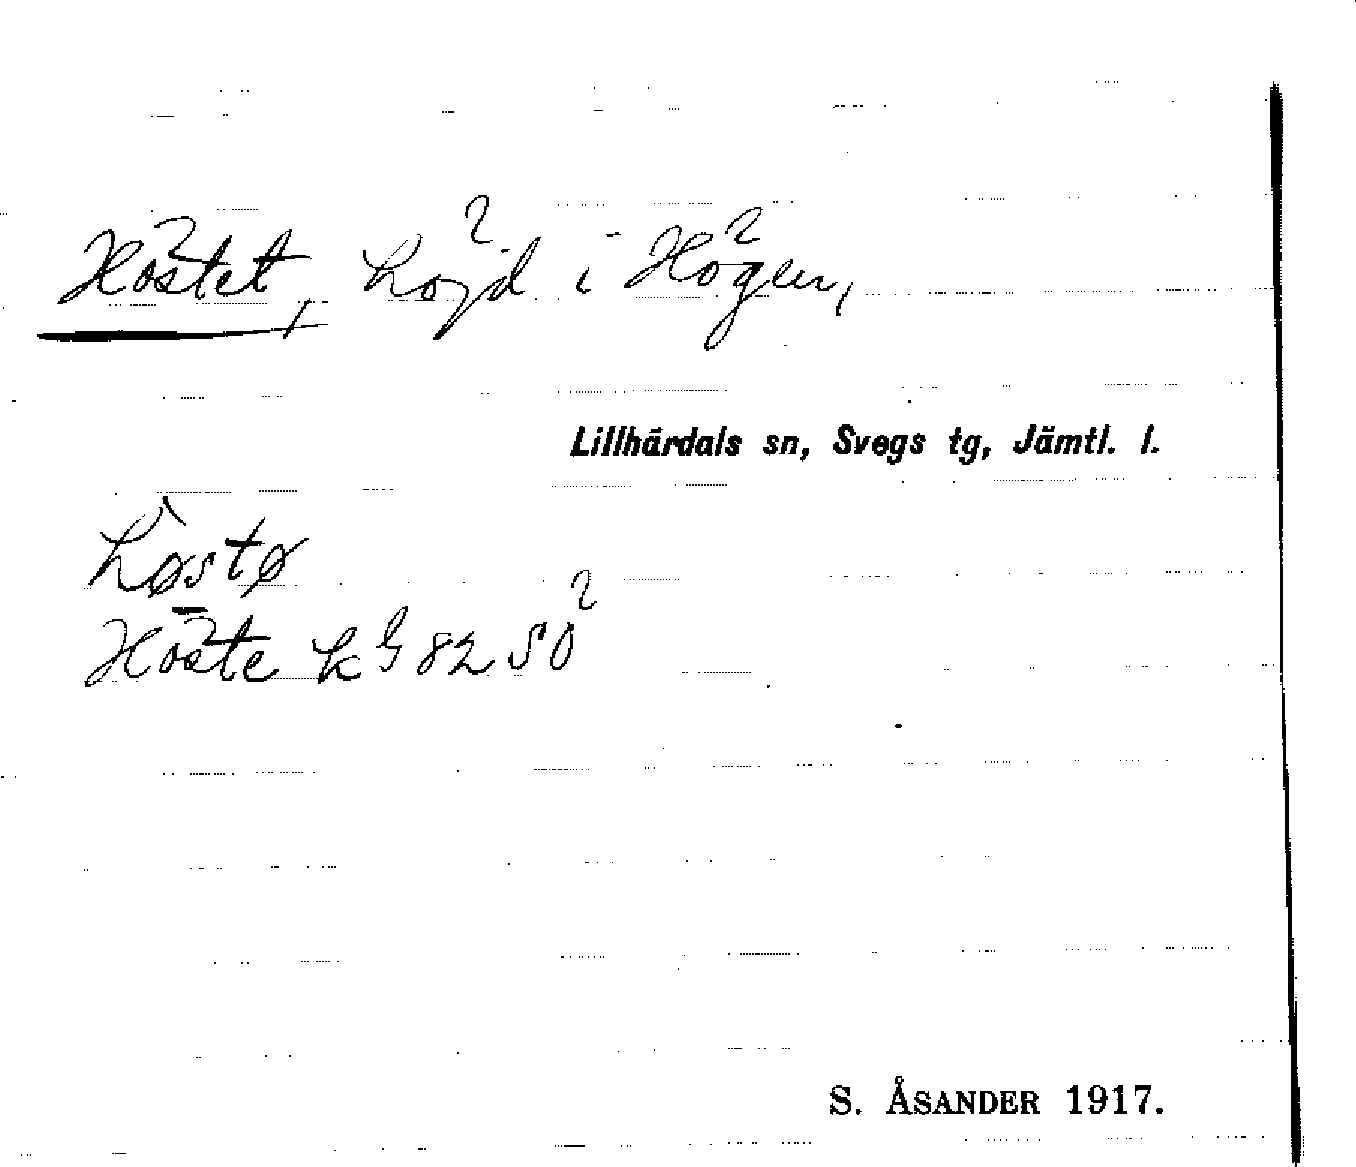 Höstet, höjd i Högen,
Lillhärdals sn, Svegs tg, Jämtl. l.
hø̀stø
Höste k bl 82 SO
S. ÅSANDER 1917.